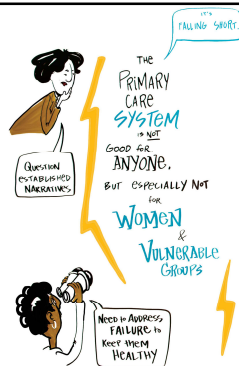 IT'S
FALLING SHORT.
THE
PRIMARY
CARE
SYSTEM
IS NOT
GOOD FOR
ANYONE,
BUT ESPECIALLY NOT
FOR
WOMEN
&
VULNERABLE
GROUPS
QUESTION
ESTABLISHED
NARRATIVES
NEED to ADDRESS
FAILURE to
KEEP tHEM
HEALTHY